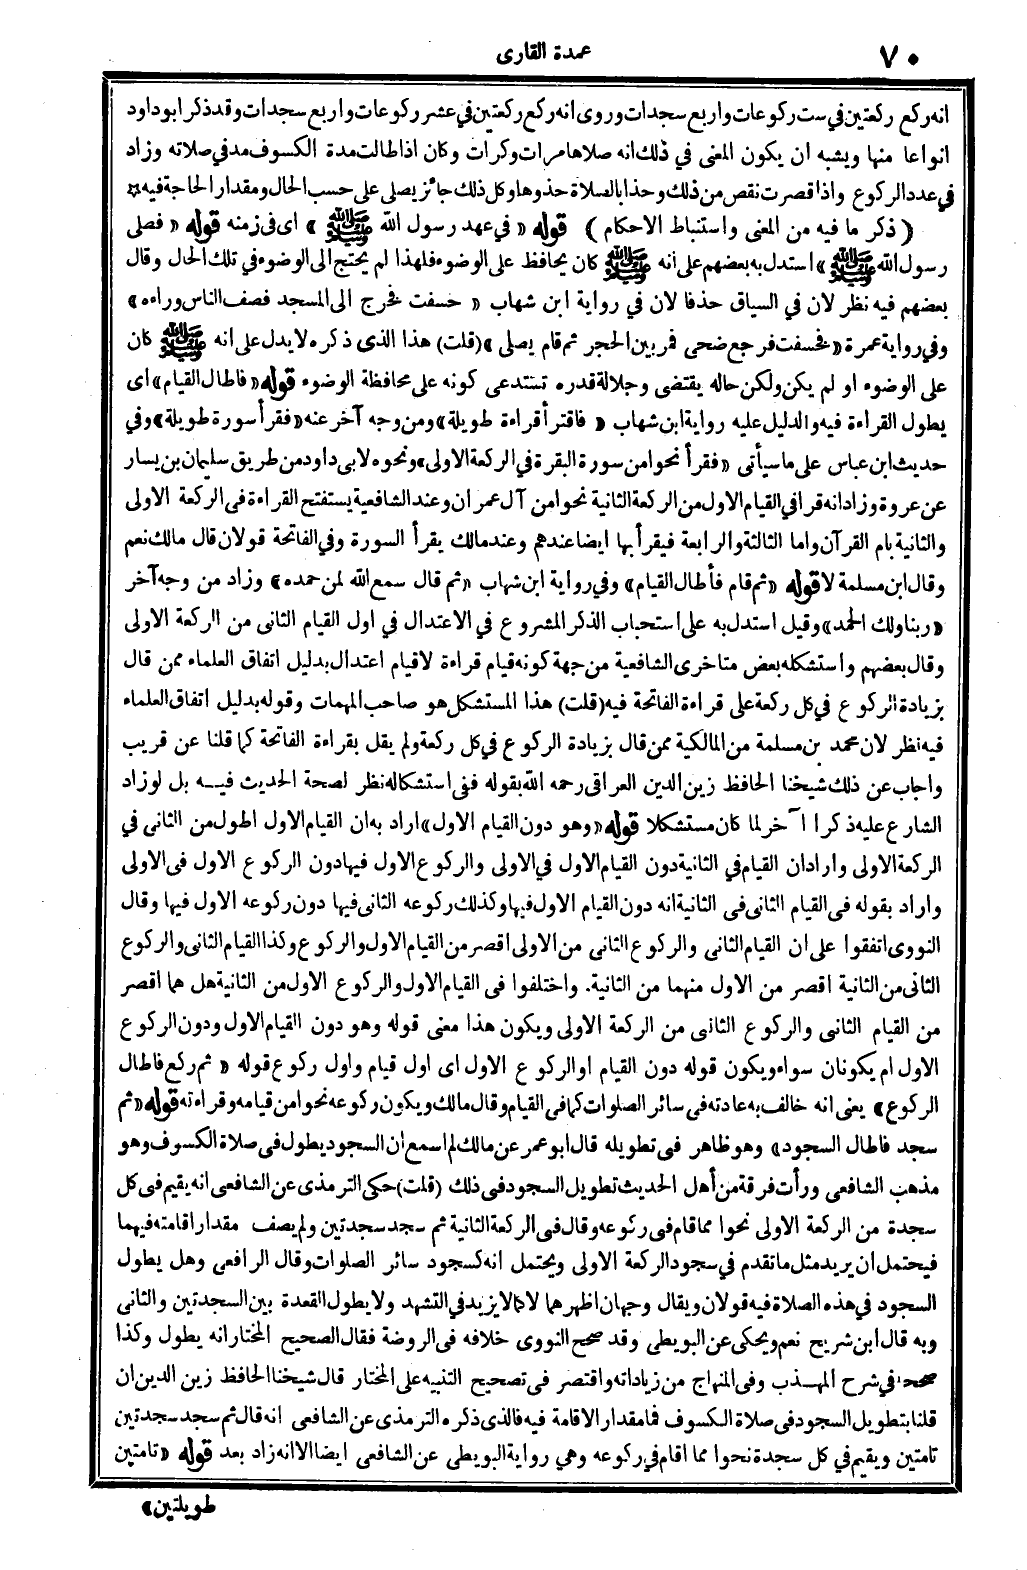 ٧٠
عمدة القارى
انه ركع ركعتين في ست ركوعات واربع سجدات وروى انه ركع ركعتين في عشر ركوعات واربع سجدات وقد ذكر ابو داود
انواعا منها ويشبه ان يكون المعنى في ذلك انه صلاها مرات وكرات وكان اذا طالت مدة الكسوف مد في صلاته وزاد
في عدد الركوع واذا قصرت نقص من ذلك وحذا بالصلاة حذوها وكل ذلك جائز يصلى على حسب الحال ومقدار الحاجة فيه ¤
( ذكر ما فيه من المعنى واستنباط الاحكام ) قوله « في عهد رسول الله ﷺ » اى في زمنه قوله « فصلى
رسول الله ﷺ » استدل به بعضهم على انه ﷺ كان يحافظ على الوضوء فلهذا لم يحتج الى الوضوء في تلك الحال وقال
بعضهم فيه نظر لان في السياق حذفا لان في رواية ابن شهاب « خسفت فخرج الى المسجد فصف الناس وراءه »
وفي رواية عمرة « فخسفت فرجع ضحى فمر بين الحجر ثم قام يصلى » (قلت) هذا الذى ذكره لا يدل على انه ﷺ كان
على الوضوء او لم يكن ولكن حاله يقتضى وجلالة قدره تستدعى كونه على محافظة الوضوء قوله « فاطال القيام » اى
يطول القراءة فيه والدليل عليه رواية ابن شهاب « فاقترأ قراءة طويلة » ومن وجه آخر عنه « فقرأ سورة طويلة » وفي
حديث ابن عباس على ما سيأتى « فقرأ نحوا من سورة البقرة في الركعة الاولى » ونحوه لابى داود من طريق سليمان بن يسار
عن عروة وزاد انه قرا في القيام الاول من الركعة الثانية نحوا من آل عمران وعند الشافعية يستفتح القراءة فى الركعة الاولى
والثانية بام القرآن واما الثالثة والرابعة فيقرأ بها ايضا عندهم وعند مالك يقرأ السورة وفي الفاتحة قولان قال مالك نعم
وقال ابن مسلمة لا قوله « ثم قام فأطال القيام » وفي رواية ابن شهاب « ثم قال سمع الله لمن حمده » وزاد من وجه آخر
« ربنا ولك الحمد » وقيل استدل به على استحباب الذكر المشروع في الاعتدال في اول القيام الثانى من الركعة الاولى
وقال بعضهم واستشكله بعض متاخرى الشافعية من جهة كونه قيام قراءة لا قيام اعتدال بدليل اتفاق العلماء ممن قال
بزيادة الركوع في كل ركعة على قراءة الفاتحة فيه (قلت) هذا المستشكل هو صاحب المهمات وقوله بدليل اتفاق العلماء
فيه نظر لان محمد بن مسلمة من المالكية ممن قال بزيادة الركوع في كل ركعة ولم يقل بقراءة الفاتحة كما قلنا عن قريب
واجاب عن ذلك شيخنا الحافظ زين الدين العراقى رحمه الله بقوله ففى استشكاله نظر لصحة الحديث فيــه بل لو زاد
الشارع عليه ذكرا آخر لما كان مستشكلا قوله « وهو دون القيام الاول » اراد به ان القيام الاول اطول من الثانى في
الركعة الاولى وارادان القيام في الثانية دون القيام الاول في الاولى والركوع الاول فيها دون الركوع الاول فى الاولى
واراد بقوله فى القيام الثانى فى الثانية انه دون القيام الاول فيها وكذلك ركوعه الثانى فيها دون ركوعه الاول فيها وقال
النووى اتفقوا على ان القيام الثانى والركوع الثانى من الاولى اقصر من القيام الاول والركوع وكذا القيام الثانى والركوع
الثانى من الثانية اقصر من الاول منهما من الثانية. واختلفوا فى القيام الاول والركوع الاول من الثانية هل هما اقصر
من القيام الثانى والركوع الثانى من الركعة الاولى ويكون هذا معنى قوله وهو دون القيام الاول ودون الركوع
الاول ام يكونان سواء ويكون قوله دون القيام او الركوع الاول اى اول قيام واول ركوع قوله « ثم ركع فاطال
الركوع » يعنى انه خالف به عادته فى سائر الصلوات كما فى القيام وقال مالك ويكون ركوعه نحوا من قيامه وقراءته قوله « ثم
سجد فاطال السجود » وهو ظاهر فى تطويله قال ابو عمر عن مالك لم اسمع ان السجود يطول فى صلاة الكسوف وهو
مذهب الشافعى ورأت فرقة من أهل الحديث تطويل السجود فى ذلك (قلت) حكى الترمذى عن الشافعى انه يقيم فى كل
سجدة من الركعة الاولى نحوا مما قام فى ركوعه وقال فى الركعة الثانية ثم سجد سجدتين ولم يصف مقدار اقامته فيهما
فيحتمل ان يريد مثل ما تقدم في سجود الركعة الاولى ويحتمل انه كسجود سائر الصلوات وقال الرافعى وهل يطول
السجود في هذه الصلاة فيه قولان ويقال وجهان اظهرهما لا كما لا يزيد في التشهد ولا يطول القعدة بين السجدتين والثانى
وبه قال ابن شريح نعم ويحكى عن البويطى وقد صحح النووى خلافه فى الروضة فقال الصحيح المختار انه يطول وكذا
صححه فى شرح المهــذب وفى المنهاج من زياداته واقتصر فى تصحيح التنبيه على المختار قال شيخنا الحافظ زين الدين ان
قلنا بتطويل السجود فى صلاة الكسوف فما مقدار الاقامة فيه فالذى ذكره الترمذى عن الشافعى انه قال ثم سجد سجدتين
تامتين ويقيم في كل سجدة نحوا مما اقام في ركوعه وهي رواية البويطى عن الشافعى ايضا الا انه زاد بعد قوله « تامتين
طويلتين »